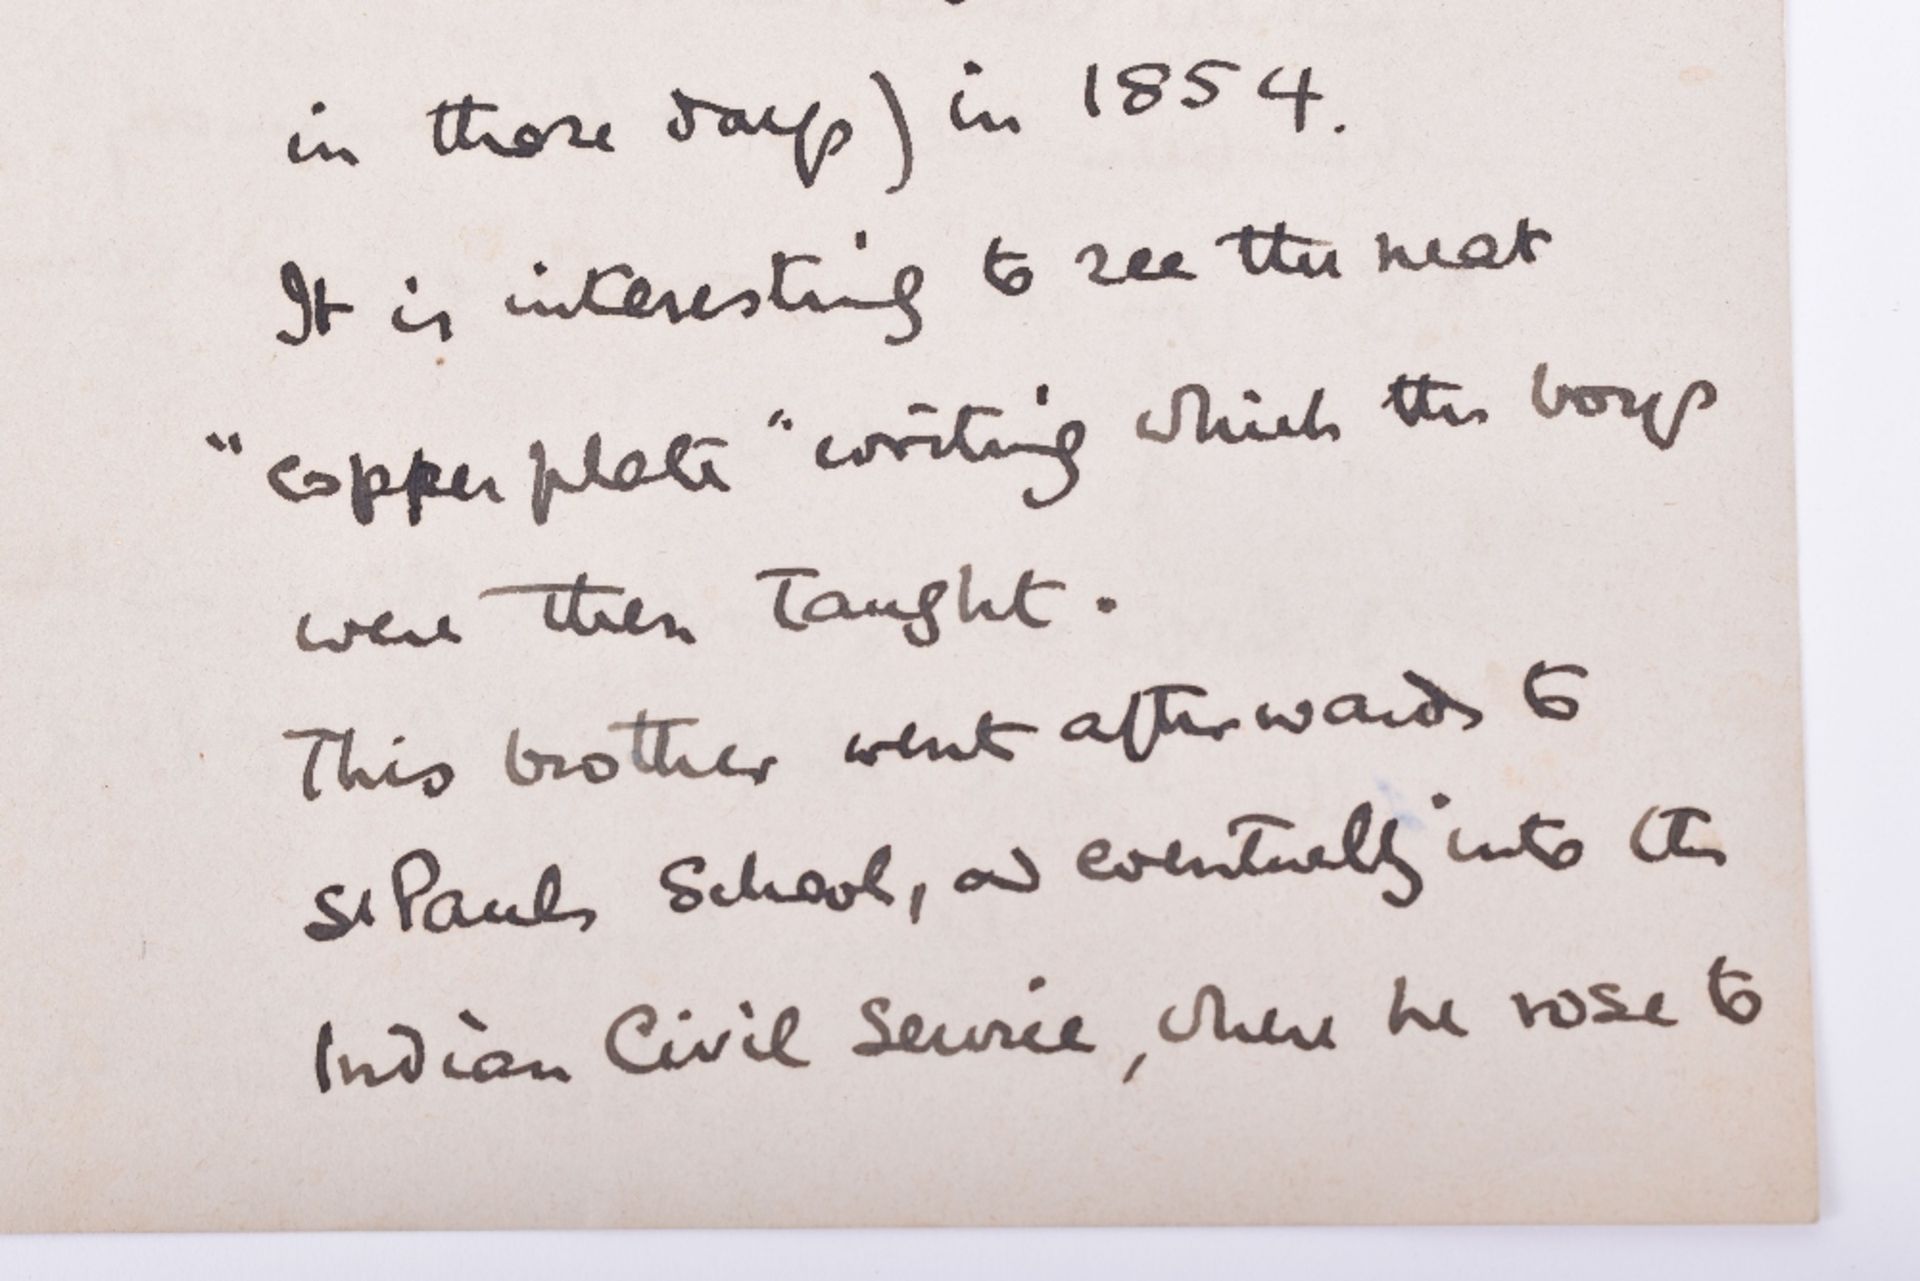 in those days) in 1854.
It is interesting to see the neat
"copper plate" writing which the boys
were then taught.
This brother went afterwards to
St Pauls School, and eventually into the
Indian Civil Service, where he rose to